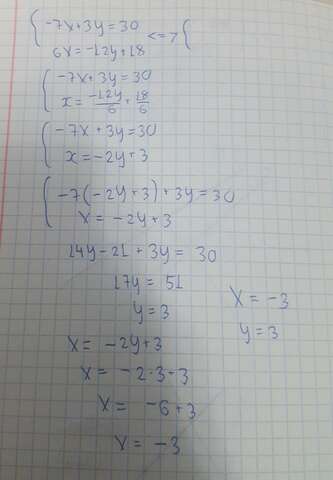 -7x+3y=30
6x=-12y+18 <=> 
-7x+3y=30
x=-12y/6+18/6
-7x+3y=30
x=-2y+3
-7(-2y+3)+3y=30
x=-2y+3
14y-21+3y=30
17y=51
y=3
x=-3
y=3
x=-2y+3
x=-2·3+3
x=-6+3
x=-3